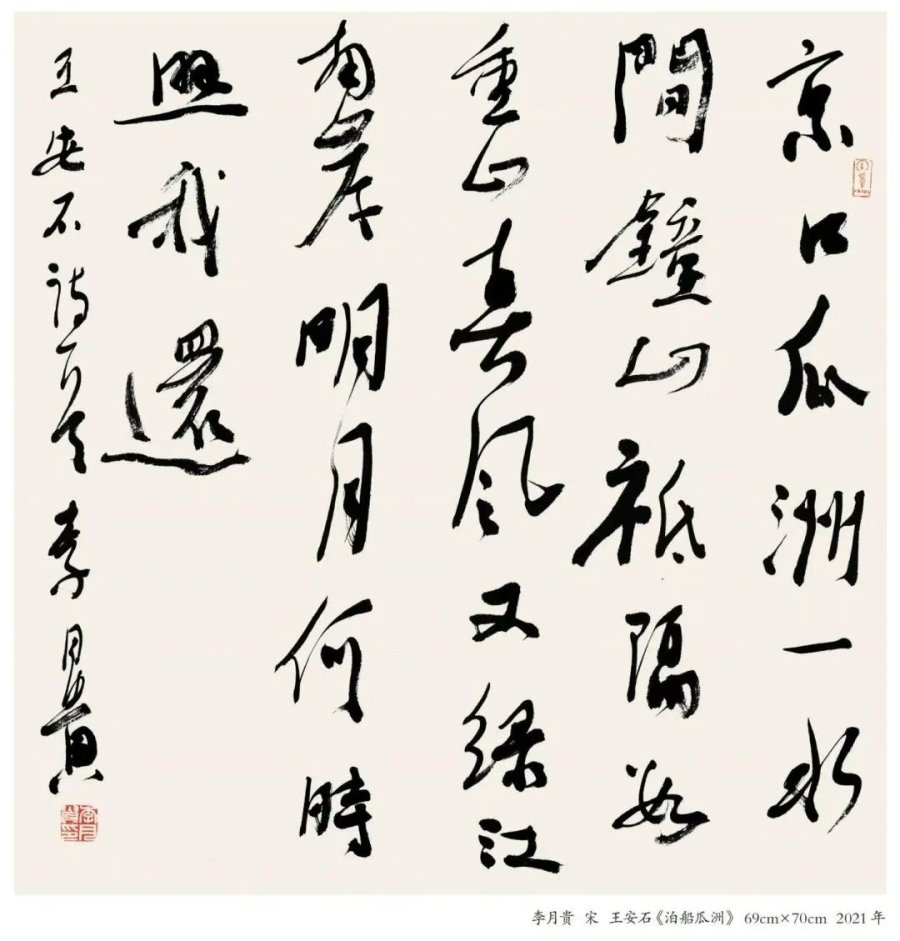 京口瓜洲一水
間鐘山祗隔數
重山春風又綠江
南岸明月何時
照我還
王安石詩一首 李月貴
李月貴印
李月贵 宋 王安石《泊船瓜洲》 69cm×70cm 2021年